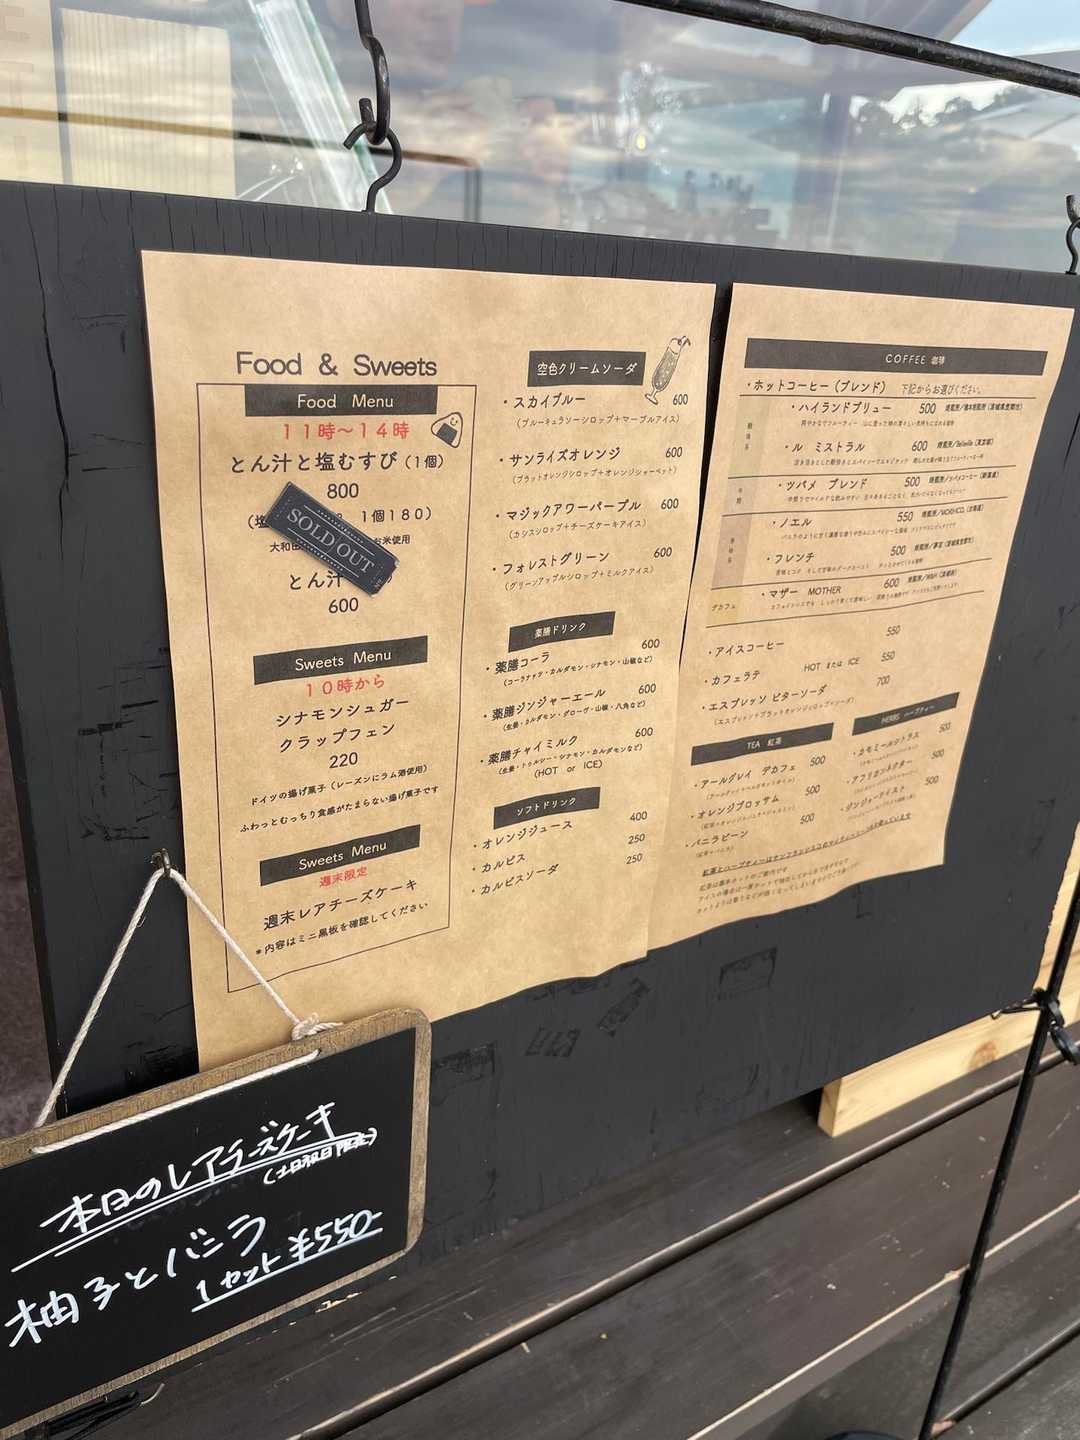 Food & Sweets
Food Menu
11時～14時
とん汁と塩むすび(1個)
800
1個180)
SOLD OUT
お米使用
とん汁
600
Sweets Menu
10時から
シナモンシュガー
クラップフェン
220
ドイツの揚げ菓子(レーズンにラム酒使用)
ふわっとむっちり食感がたまらない揚げ菓子です
Sweets Menu
週末限定
週末レアチーズケーキ
*内容はミニ黒板を確認してください
空色クリームソーダ
・スカイブルー 600
(ブルーキュラソーシロップ+マーブルアイス)
・サンライズオレンジ 600
(ブラッドオレンジシロップ+オレンジシャーベット)
・マジックアワーパープル 600
(カシスシロップ+チーズケーキアイス)
・フォレストグリーン 600
(グリーンアップルシロップ+ミルクアイス)
薬膳ドリンク
・薬膳コーラ 600
(コーラナッツ・カルダモン・シナモン・山椒など)
・薬膳ジンジャーエール 600
(生姜・カルダモン・グローヴ・山椒・八角など)
・薬膳チャイミルク 600
(生姜・トゥルシー・シナモン・カルダモンなど)
(HOT or ICE)
ソフトドリンク
・オレンジジュース 400
・カルピス 250
・カルピスソーダ 250
COFFEE 珈琲
・ホットコーヒー(ブレンド) 下記からお選びください。
・ハイランドブリュー 500
・ル ミストラル 600
・ツバメ ブレンド 500
・ノエル 550
・フレンチ 500
デカフェ
・マザー MOTHER 600
・アイスコーヒー 550
・カフェラテ HOT または ICE 550
・エスプレッソ ビターソーダ 700
(エスプレッソ+ブラッドオレンジシロップ+ソーダ)
TEA 紅茶
・アールグレイ デカフェ 500
・オレンジブロッサム 500
・バニラビーン 500
HERBS ハーブティー
・カモミールシトラス 500
・アフリカンネクター 500
・ジンジャーツイスト 500
本日のレアチーズケーキ
(土日祝日限定)
柚子とバニラ
1セット ¥550-